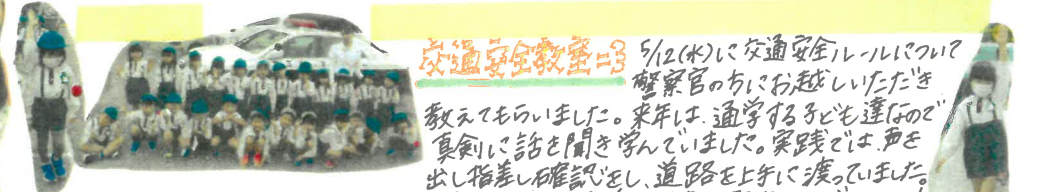 交通安全教室=3
5/12(水)に交通安全ルールについて
警察官の方にお越しいただき
教えてもらいました。来年は、通学する子ども達なので
真剣に話を聞き学んでいました。実践では、声を
出し指差し確認をし、道路を上手に渡っていました。